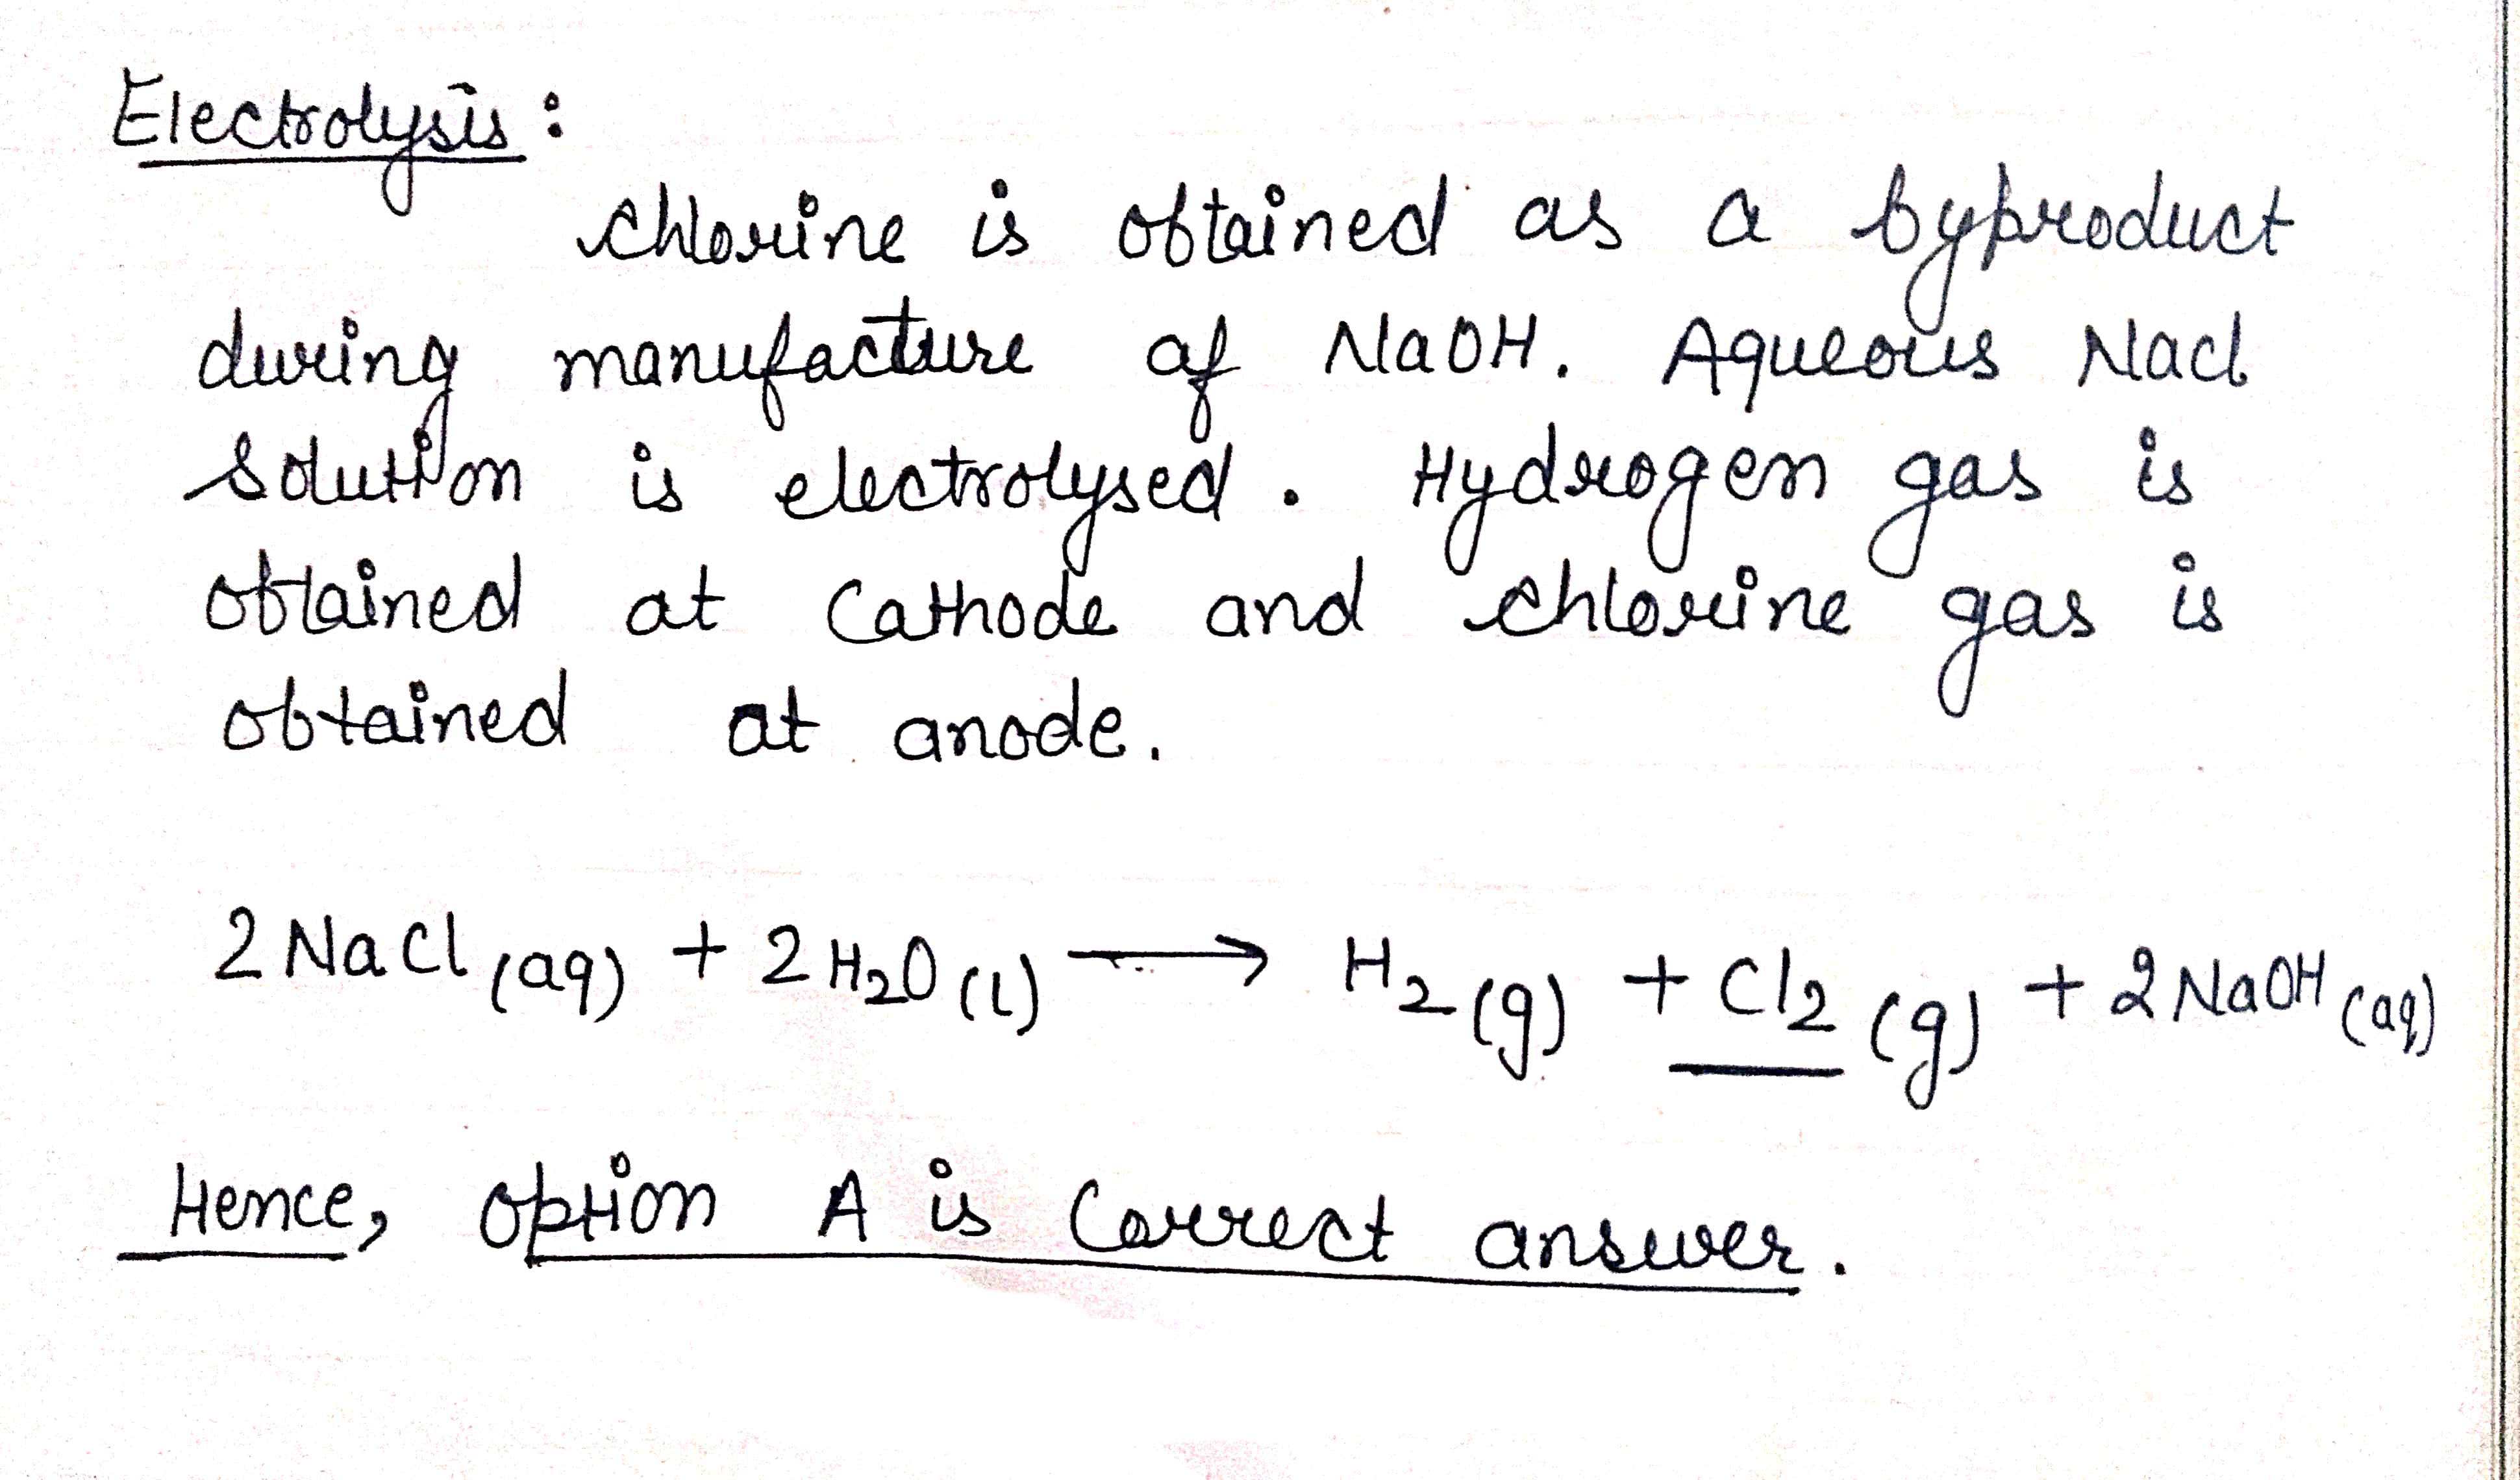 Electrolysis :
Chlorine is obtained as a byproduct
during manufacture of NaOH. Aqueous Nacl
solution is electrolysed. Hydrogen gas is
obtained at Cathode and chlorine gas is
obtained at anode.
2 NaCl (aq) + 2 H₂O (l) ⟶ H₂ (g) + Cl₂ (g) + 2 NaOH (aq)
Hence, option A is Correct answer.